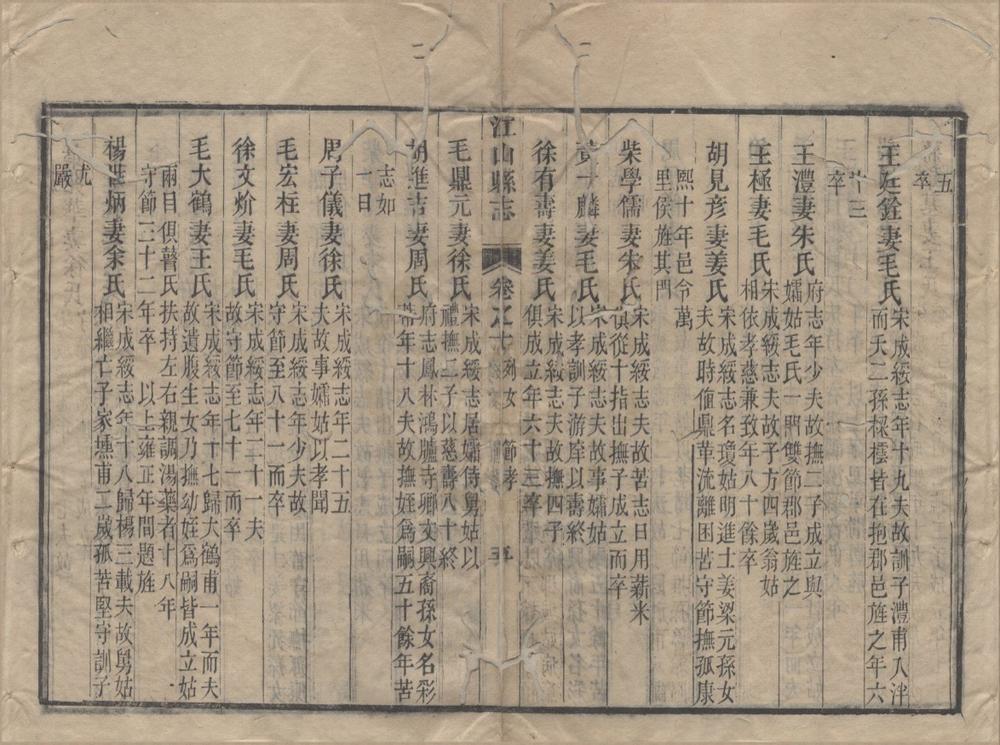 五
卒
王廷銓妻毛氏
宋成綏志年十九夫故訓子澧甫入泮
而夭二孫 皆在抱郡邑旌之年六
十三
卒
王澧妻朱氏
府志年少夫故撫二子成立與
孀姑毛氏一門雙節郡邑旌之
王極妻毛氏
宋成綏志夫故子方四歲翁姑
相依孝慈兼致年八十餘卒
胡見彥妻姜氏
宋成綏志名瓊姑明進士姜梁元孫女
夫故時值鼎革流離困苦守節撫孤康
熙十年邑令萬
里侯旌其門
柴學儒妻朱氏
宋成綏志夫故苦志日用薪米
俱從十指出撫子成立而卒
黃十麟妻毛氏
宋成綏志夫故事孀姑
以孝訓子游庠以壽終
徐有壽妻姜氏
宋成綏志夫故撫四子
俱成立年六十三卒
江山縣志
卷之十
列女
節孝
五
毛鼎元妻徐氏
宋成綏志居孀侍舅姑以
禮撫三子以慈壽八十終
胡進吉妻周氏
府志鳳林鴻臚寺卿文興裔孫女名彩
蒂年十八夫故撫姪爲嗣五十餘年苦
志如
一日
周子儀妻徐氏
宋成綏志年二十五
夫故事孀姑以孝聞
毛宏柱妻周氏
宋成綏志年少夫故
守節至八十一而卒
徐文炌妻毛氏
宋成綏志年二十一夫
故守節至七十一而卒
毛大鶴妻王氏
宋成綏志年十七歸大鶴甫一年而夫
故遺腹生女乃撫幼姪爲嗣皆成立姑
兩目俱瞽氏扶持左右親調湯藥者十八年
守節三十二年卒 以上雍正年間題旌
楊 炳妻余氏
宋成綏志年十八歸楊三載夫故舅姑
相繼亡子家 甫二歲孤苦堅守訓子
尤
嚴
二
二